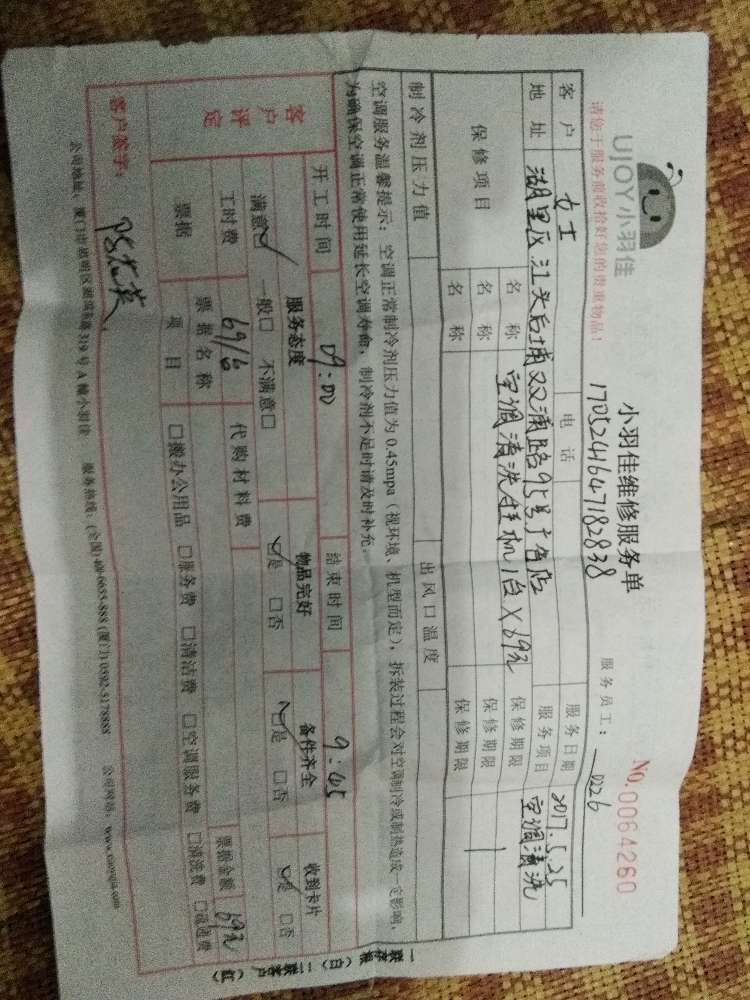 UJOY小羽佳
小羽佳维修服务单
No.0064260
请您于服务前收拾好您的贵重物品!
1705241647182838
服务员工: 0226
客户 女士 电话 服务日期 2017.5.25
地址 湖里区江头后埔双浦路95号广告店 服务项目 空调清洗
保修项目 名称 空调清洗挂机1台X69元 保修期限
名称 保修期限
名称 保修期限
制冷剂压力值 出风口温度
空调服务温馨提示: 空调正常制冷剂压力值为 0.45mpa(视环境、机型而定), 拆装过程会对空调制冷或制热造成一定影响,
为确保空调正常使用延长空调寿命, 制冷剂不足时请及时补充。
开工时间 09:00 结束时间 9:45
客户评定 服务态度 物品完好 备件齐全 收到卡片
满意□ 一般□ 不满意□ □是 □否 □是 □否 □是 □否
工时费 69/台 代购材料费 票据金额 69元
票据 票据名称
项目 □搬办公用品 □服务费 □清洁费 □空调服务费 □清洗费
客户签字:
一联存根(白) 二联客户(红)